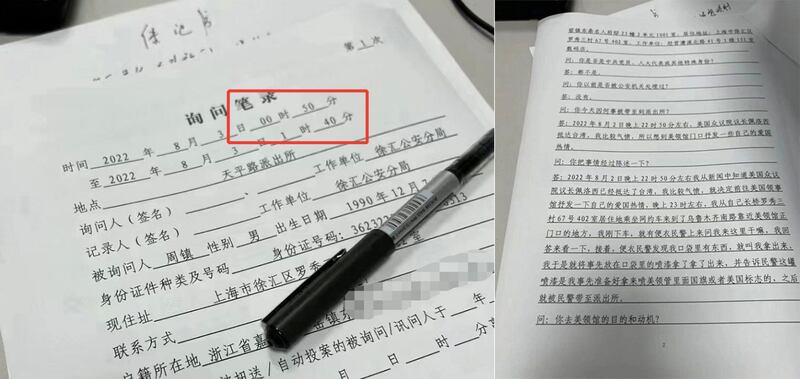 徐记书
第 1 次
询问笔录
时间 2022 年 8 月 3 日 00 时 50 分
至 2022 年 8 月 3 日 1 时 40 分
地点 天平路派出所
询问人（签名） 工作单位 徐汇公安分局
记录人（签名） 工作单位 徐汇公安分局
被询问人 周镇 性别 男 出生日期 1990 年 12 月
身份证件种类及号码 身份证号码：362322
现住址 上海市徐汇区罗秀
联系方式
户籍所在地 浙江省嘉
扭送/自动投案的被询问/讯问人于 年
月 日 时 分
数码店。
问：你是否是中共党员、人大代表或其他特殊身份？
答：都不是。
问：你以前是否被公安机关处理过？
答：没有。
问：你今天因何事被带至到派出所？
答：2022 年 8 月 2 日晚上 22 时 50 分左右，美国众议院议长佩洛西
抵达台湾，我比较气愤，所以想到美领馆门口抒发一些自己的爱国
热情。
问：你把事情经过陈述一下？
答：2022 年 8 月 2 日晚上 22 时 50 分左右我从新闻中知道美国众议
院议长佩洛西已经抵达了台湾，我比较气愤，就决定前往美国领事
馆抒发一下自己的爱国热情，晚上 23 时左右，我从自己长桥罗秀三
村 67 号 402 室居住地乘坐网约车来到了乌鲁木齐南路靠近美领馆正
门口的地方，我刚下车，就有便衣民警上来问我来这里干嘛，我回
答来看一下，接着，便衣民警发现我口袋里有东西，就叫我拿出来，
我于是就将事先放在口袋里的喷漆拿了拿了出来，并告诉民警这罐
喷漆是我事先准备好拿来喷美领管里面国旗或者美国标志的，之后
就被民警带至派出所。
问：你去美领馆的目的和动机？
2